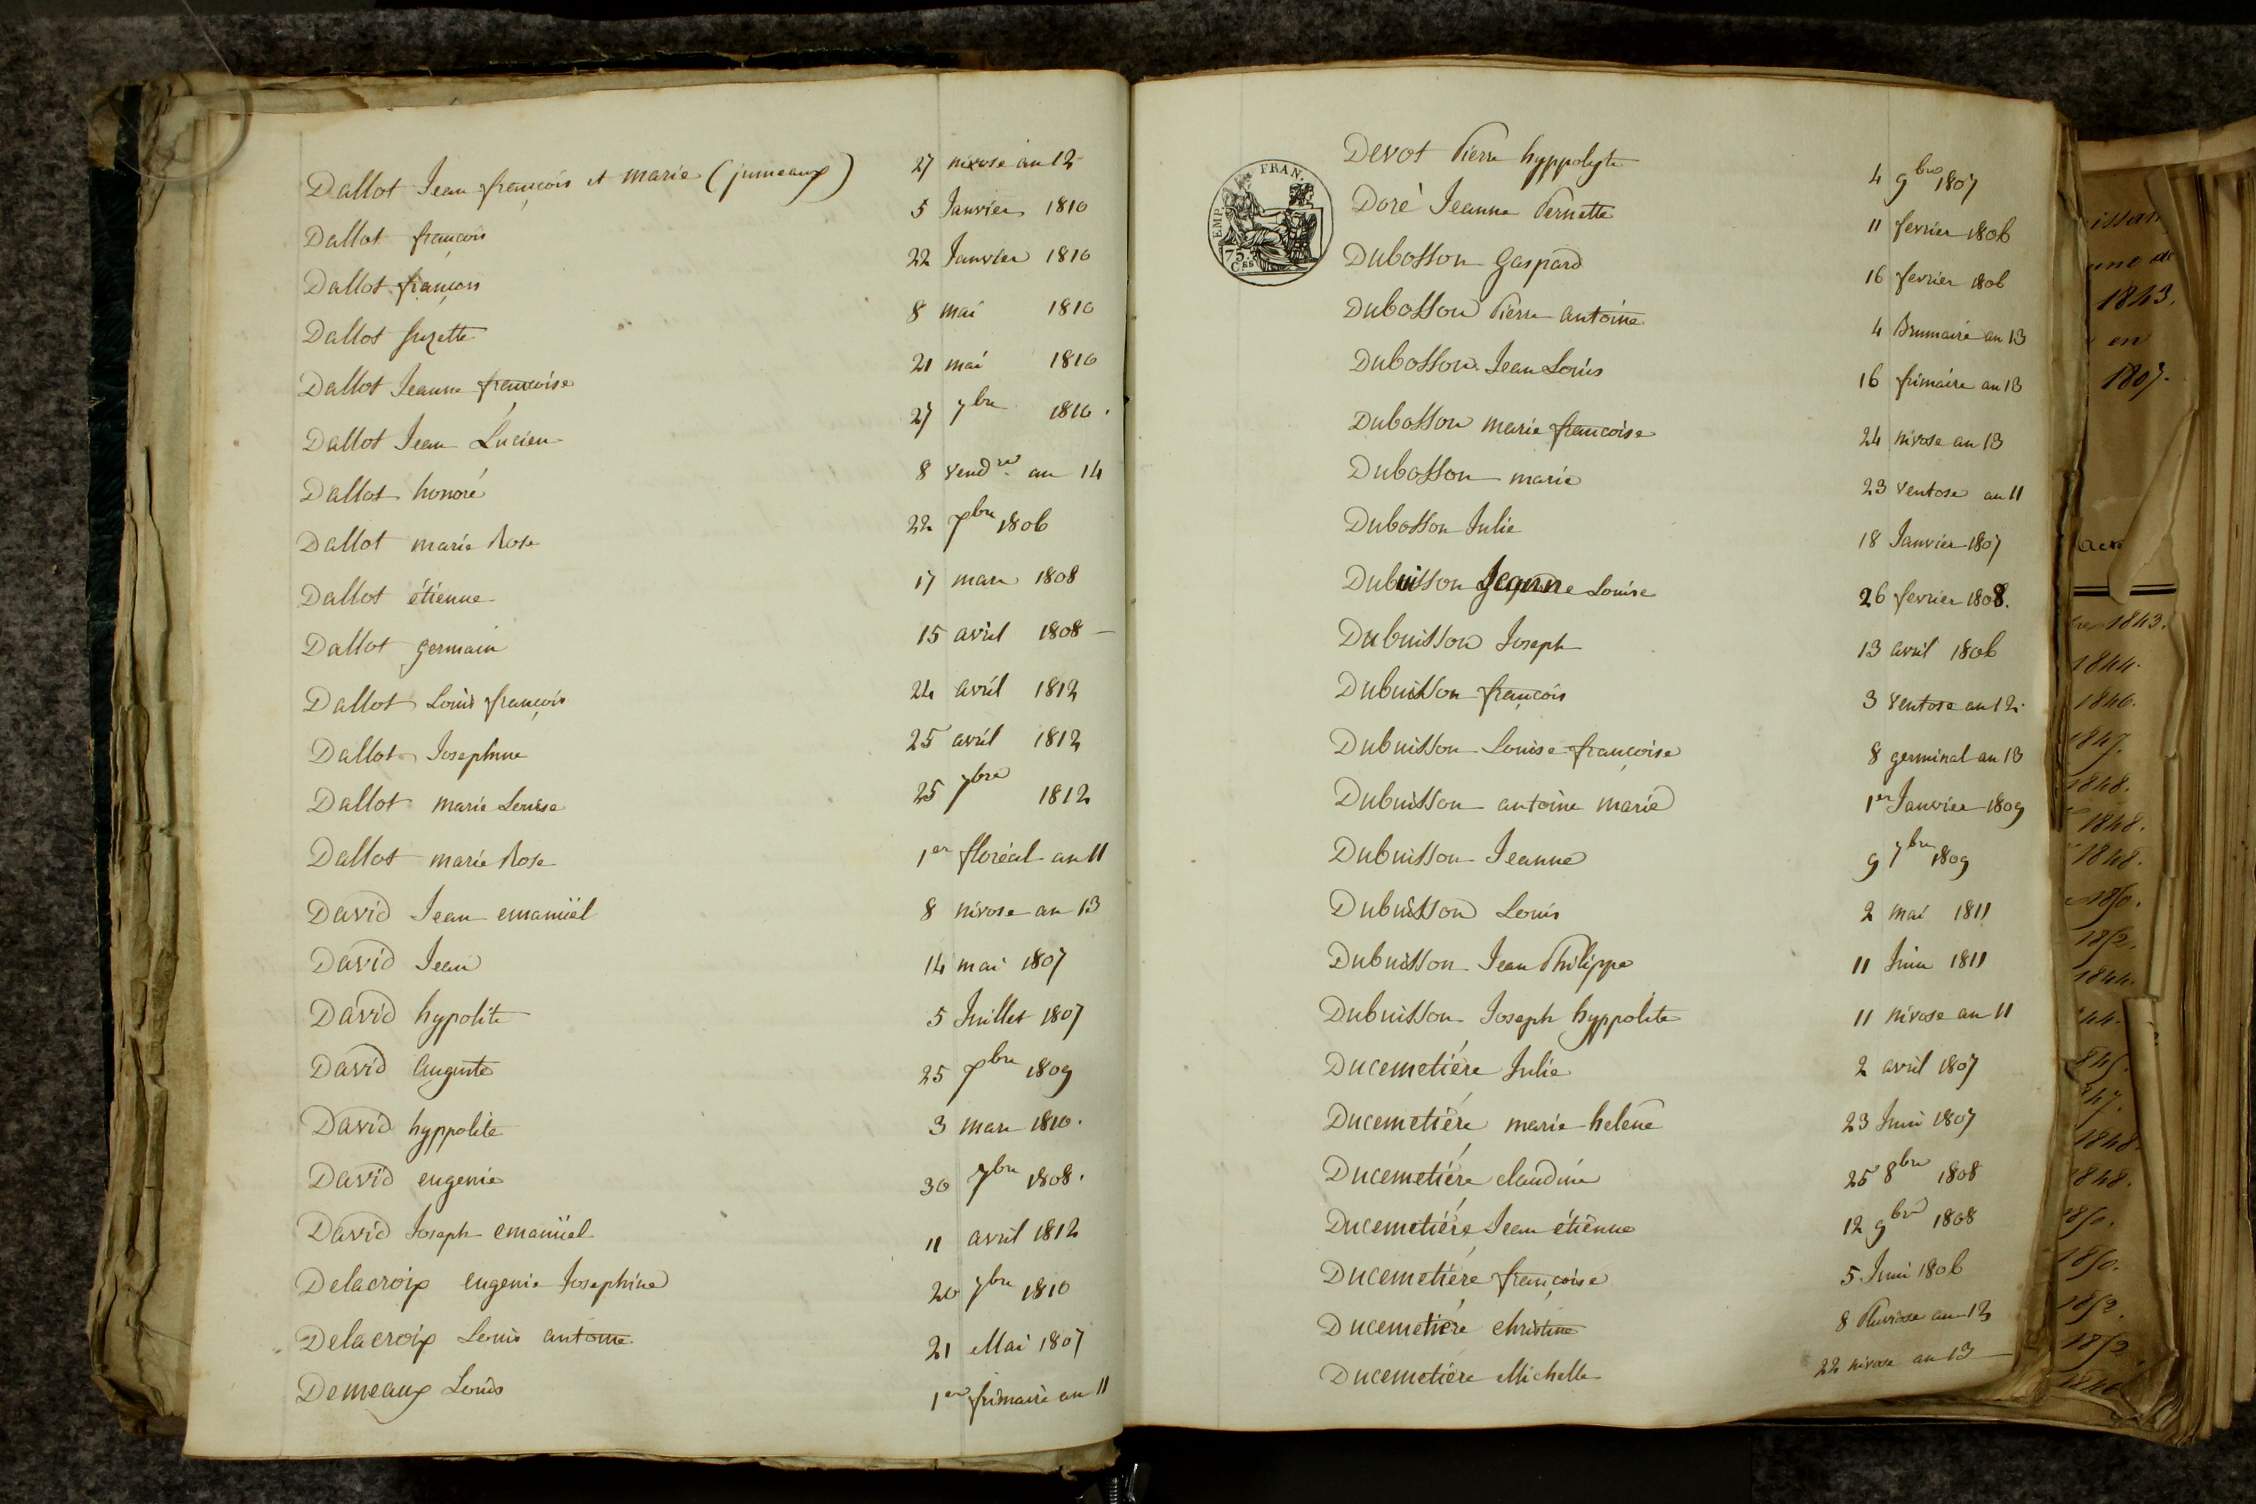 Dallot Jean françois et marie (jumeaux) 27 nivose an 12
Dallot françois 5 Janvier 1810
Dallot françois 22 Janvier 1810
Dallot suzette 8 mai 1810
Dallot Jeanne françoise 21 mai 1810
Dallot Jean Lucien 27 7bre 1810.
Dallot honoré 8 vendre an 14
Dallot marie Rose 22 7bre 1806
Dallot étienne 17 mars 1808
Dallot germain 15 avril 1808 –
Dallot Louis françois 24 avril 1812
Dallot Josephine 25 avril 1812
Dallot marie Louise 25 7bre 1812
Dallot marie Rose 1er floréal an 11
David Jean emanüel 8 nivose an 13
David Jean 14 mai 1807
David hypolite 5 Juillet 1807
David auguste 25 7bre 1809
David hyppolite 3 mars 1810.
David eugenie 30 7bre 1808.
David Joseph emanüel 11 avril 1812
Delacroix eugenie Josephine 20 7bre 1810
Delacroix Louis antoine 21 Mai 1807
Demeaux Louis 1er frimaire an 11
EMP. FRAN.
75.
Ces
Devot Pierre hyppolyte 4 9bre 1807
Doré Jeanne Pernette 11 fevrier 1806
Dubosson Gaspard 16 fevrier 1806
Dubosson Pierre antoine 4 Brumaire an 13
Dubosson Jean Louis 16 frimaire an 13
Dubosson marie françoise 24 nivose an 13
Dubosson marie 23 ventose an 11
Dubosson Julie 18 Janvier 1807
Dubuisson Jeanne Louise 26 fevrier 1808.
Dubuisson Joseph 13 avril 1806
Dubuisson françois 3 ventose an 12.
Dubuisson Louise françoise 8 germinal an 13
Dubuisson antoine marie 1er Janvier 1809
Dubuisson Jeanne 9 7bre 1809
Dubuisson Louis 2 mai 1811
Dubuisson Jean Philippe 11 Juin 1811
Dubuisson Joseph hyppolite 11 nivose an 11
Ducemetiére Julie 2 avril 1807
Ducemetiére marie helene 23 Juin 1807
Ducemetiére claudine 25 8bre 1808
Ducemetiére Jean étienne 12 9bre 1808
Ducemetiére françoise 5 Juin 1806
Ducemetiére christine 8 Pluviose an 13
Ducemetiére Michelle 22 nivose an 13
1843.
en
1807.
1843.
1844.
1846.
1847.
1848.
1848.
1848.
1850.
1852.
1844.
44.
845.
847.
1848.
1848.
1850.
1850.
1852.
1852